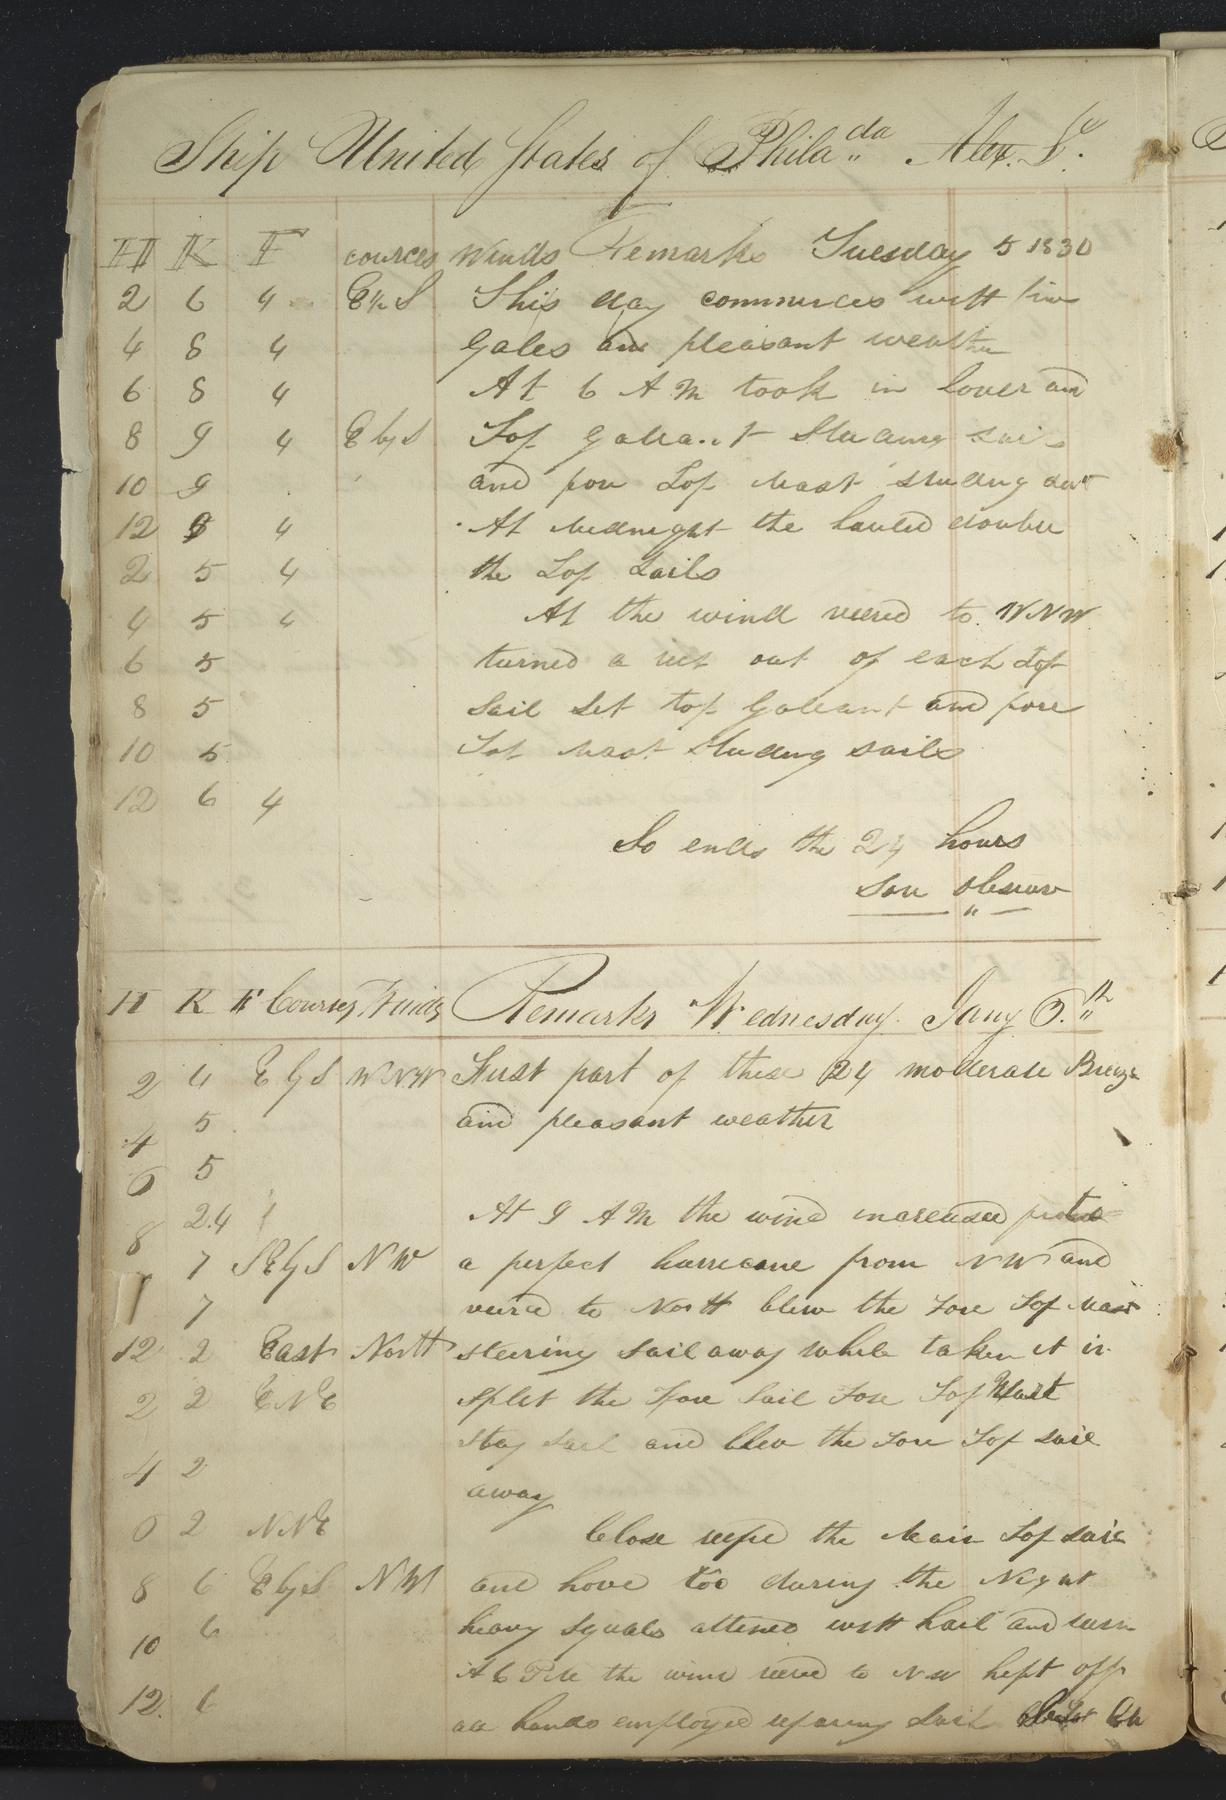 Ship United States of Phila da Alex. Sr.
H K F cources Winds Remarks Tuesday 5 1830
2 6 4 E by S This day commences with fine
4 8 4 Gales and pleasant weather
6 8 4 At 6 A M took in lower and
8 9 4 E by S Top Gallant Studing sails
10 9 and fore Top Mast studing do
12 8 4 At Midnight the hauled double
2 5 4 the Top Sails
4 5 4 At the wind veered to WNW
6 5 turned a reef out of each Top
8 5 Sail Set top Galeant and fore
10 5 Top Mast Studing sails
12 6 4
So ends the 24 hours
H K F Courses Winds Remarks Wednesday Jany 6.th
2 4 E by S WNW First part of these 24 moderate Breeze
4 5 and pleasant weather
6 5
8 2.4 At 9 A M the wind increased to
7 SE by S N W a perfect hurricane from N W and
7 veired to North blew the Fore Top Mast
12 2 East North steering sail away while taken it in
2 2 E N E Split the Fore Sail Fore Top Mast
Stay Sail and blew the Fore Top sail
4 2
away
6 2 N N E Close reefed the Main Top sail
8 6 E by S N W and hove too during the Night
10 6 heavy Squals attened with hail and
At 6 P M the wind veered to N W kept off
12 6 all hands employed reparing Sails